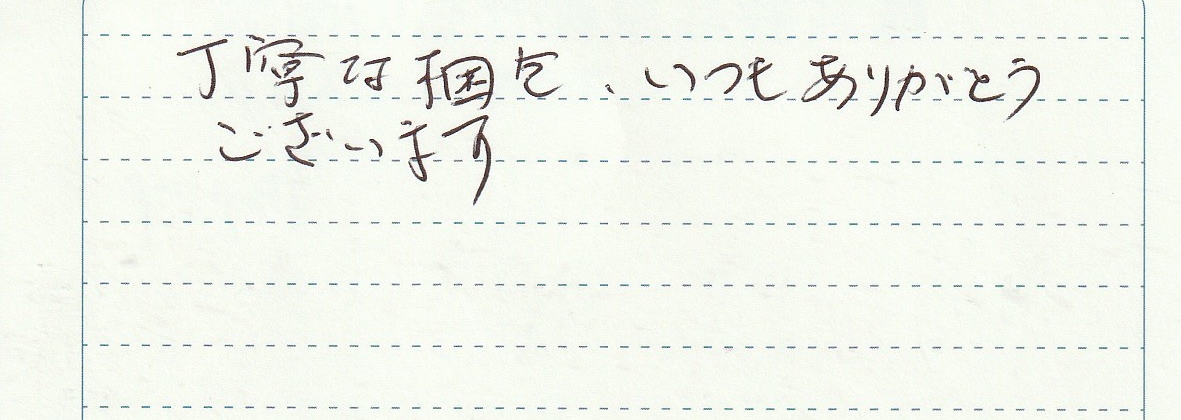 丁寧な梱包、いつもありがとう
ございます